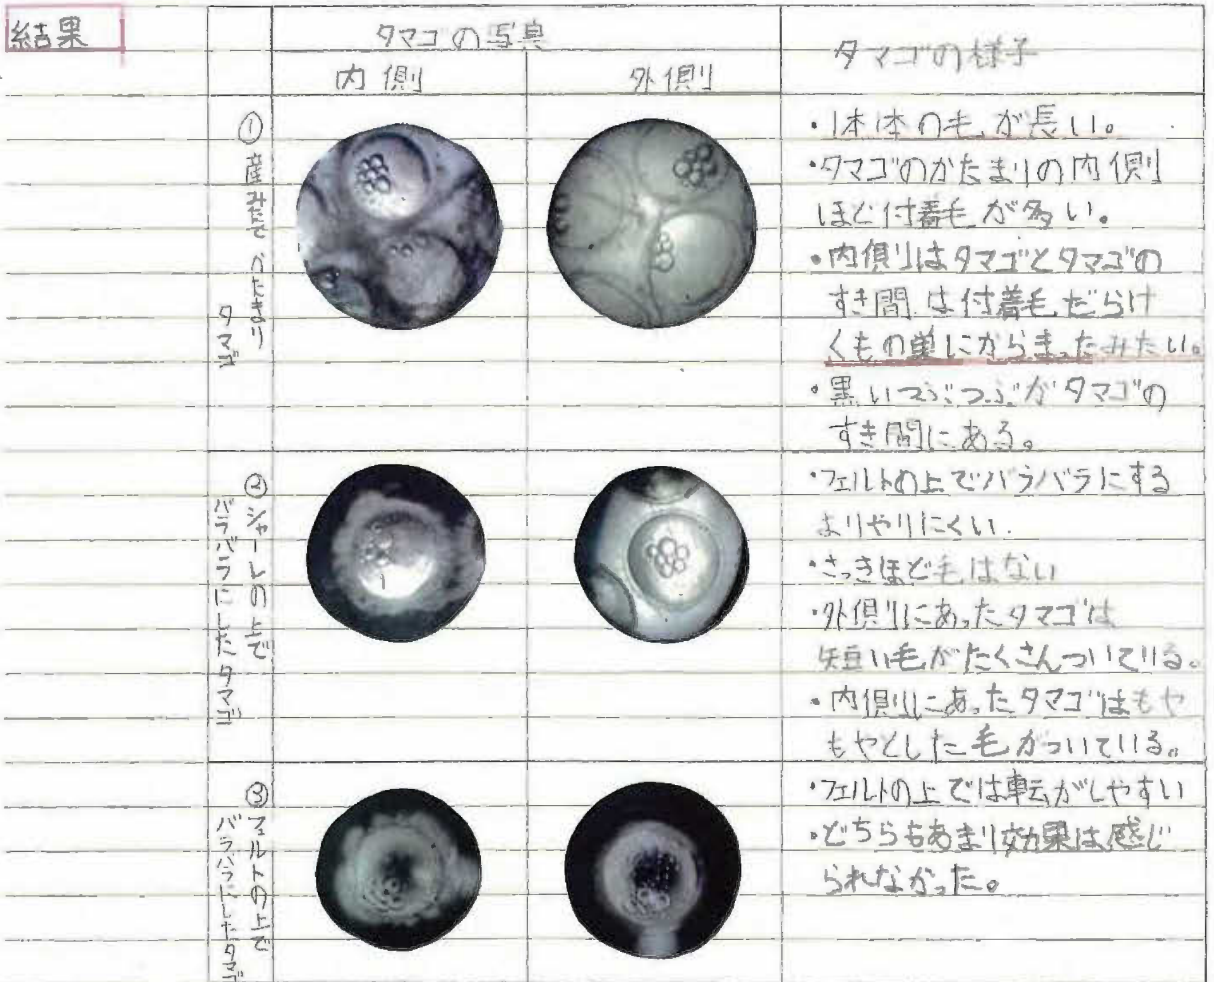 結果
タマゴの写真
内側
外側
タマゴの様子
①産みたて かたまり
タマゴ
・1本1本の毛が長い。
・タマゴのかたまりの内側
ほど付着毛が多い。
・内側はタマゴとタマゴの
すき間は付着毛だらけ
くもの巣にからまったみたい。
・黒いつぶつぶがタマゴの
すき間にある。
②シャーレの上で
バラバラにしたタマゴ
・フェルトの上でバラバラにする
よりやりにくい.
・さっきほど毛はない
・外側にあったタマゴは
短い毛がたくさんついている。
・内側にあったタマゴはもや
もやとした毛がついている。
③フェルトの上で
バラバラにしたタマゴ
・フェルトの上では転がしやすい
・どちらもあまり効果は感じ
られなかった。